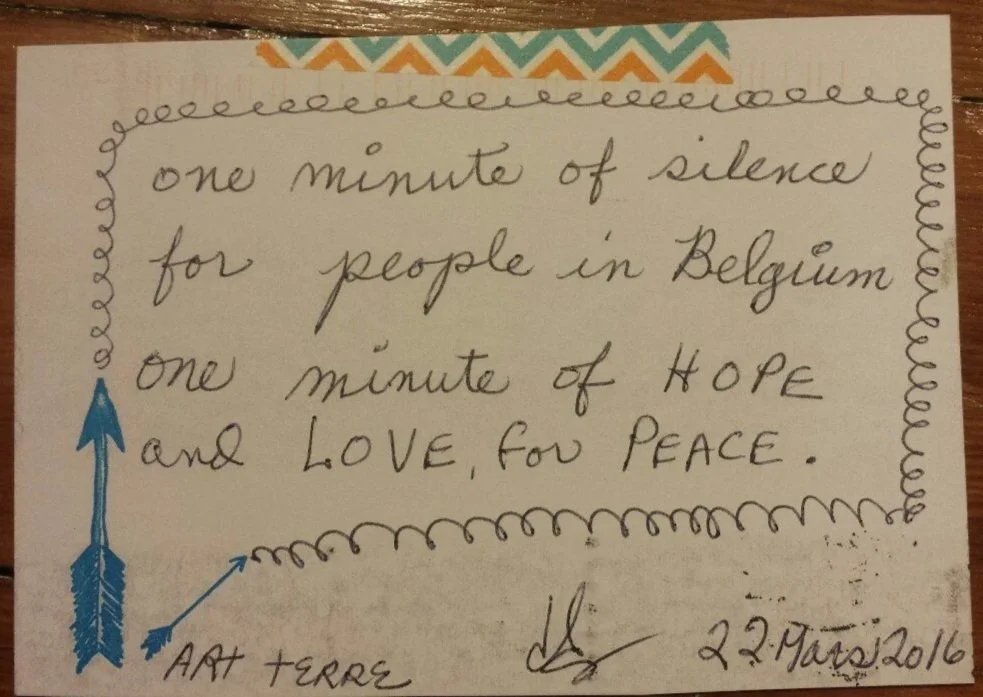 one minute of silence
for people in Belgium
one minute of HOPE
and LOVE, for PEACE.
ART TERRE 22 Mars 2016